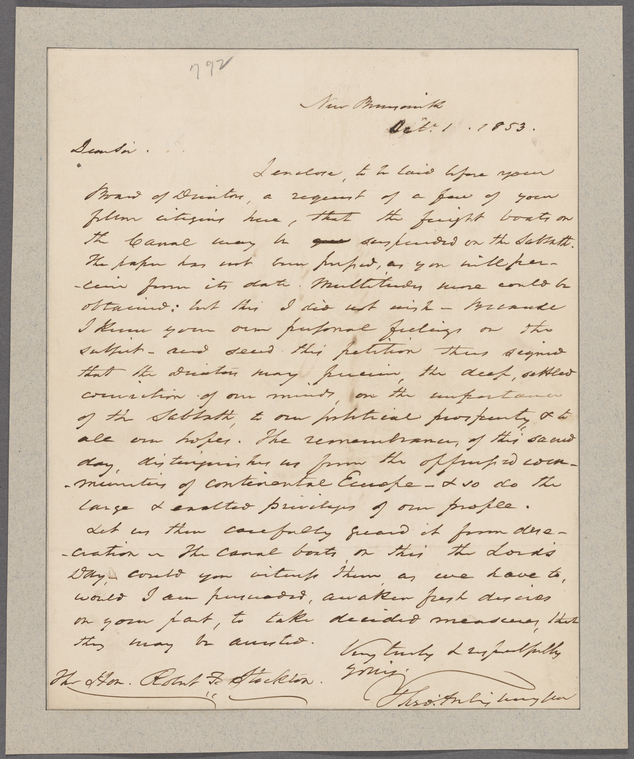 792
New Brunswick
Oct. 1. 1853.
Dear Sir.
I enclose, to be laid before your
Board of Directors, a request of a few of your
fellow citizens here, that the freight boats on
the Canal may be suspended on the Sabbath.
The paper has not been pressed, as you will per-
-ceive from its date. Multitudes more could be
obtained; but this I did not wish - Because
I knew your own personal feelings on the
subject - and send this petition thus signed
that the directors may perceive, the deep, settled
conviction of our minds, on the importance
of the Sabbath, to our political prosperity, & to
all our hopes. The remembrance, of this sacred
day, distinguishes us from the oppressed com-
-munities of continental Europe - & so do the
large & exalted privileges of our people.
Let us then carefully guard it from dese-
-cration - The Canal boats, on this the Lord's
Day, could you witness them, as we have to,
would I am persuaded, awaken fresh desires
on your part, to take decided measures, that
they may be arrested.
Very truly & respectfully
yours,
The Hon. Robert F. Stockton.